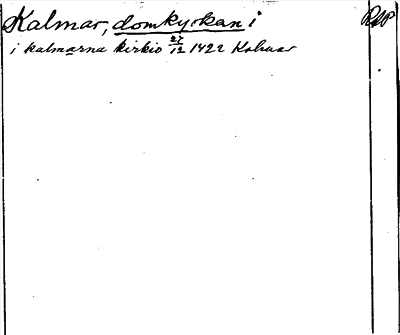 Kalmar, domkyrkan i RAP
i kalmarna kirkio 27/12 1422 Kalmar